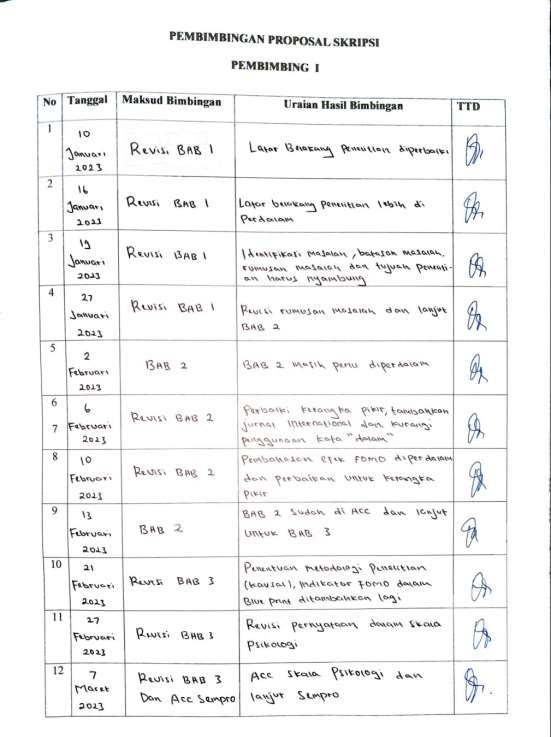 PEMBIMBINGAN PROPOSAL SKRIPSI
PEMBIMBING I
No Tanggal Maksud Bimbingan Uraian Hasil Bimbingan TTD
1
10
Januari
2023
Revisi BAB 1
Latar Belakang Penelitian diperbaiki
2
16
Januari
2023
Revisi BAB 1
Latar belakang Penelitian lebih di
Perdalam
3
19
Januari
2023
Revisi BAB 1
Identifikasi masalah, batasan masalah,
rumusan masalah dan tujuan peneliti-
an harus nyambung
4
27
Januari
2023
Revisi BAB 1
Revisi rumusan masalah dan lanjut
BAB 2
5
2
Februari
2023
BAB 2
BAB 2 masih perlu diperdalam
6
7
6
Februari
2023
Revisi BAB 2
Perbaiki kerangka pikir, tambahkan
jurnal International dan kurangi
penggunaan kata "dalam"
8
10
Februari
2023
Revisi BAB 2
Pembahasan efek FOMO diperdalam
dan perbaikan untuk kerangka
pikir
9
13
Februari
2023
BAB 2
BAB 2 Sudah di ACC dan lanjut
untuk BAB 3
10
21
Februari
2023
Revisi BAB 3
Penentuan metodologi Penelitian
(kausal), Indikator FOMO dalam
Blue print ditambahkan lagi
11
27
Februari
2023
Revisi BAB 3
Revisi pernyataan dalam skala
Psikologi
12
7
Maret
2023
Revisi BAB 3
Dan Acc Sempro
Acc Skala Psikologi dan
lanjut Sempro